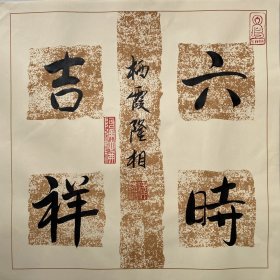 六時
吉祥
栖霞隆相